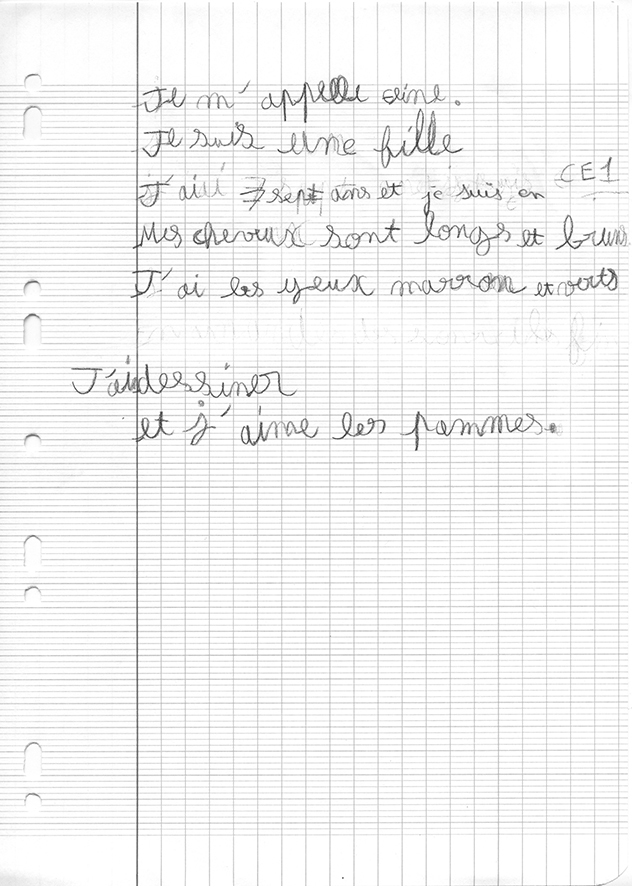 Je m'appelle
Je suis une fille
J'ai sept ans et je suis en CE1
Mes cheveux sont longs et bruns
J'ai les yeux marron et verts
J'ai dessiner
et j'aime les pommes.